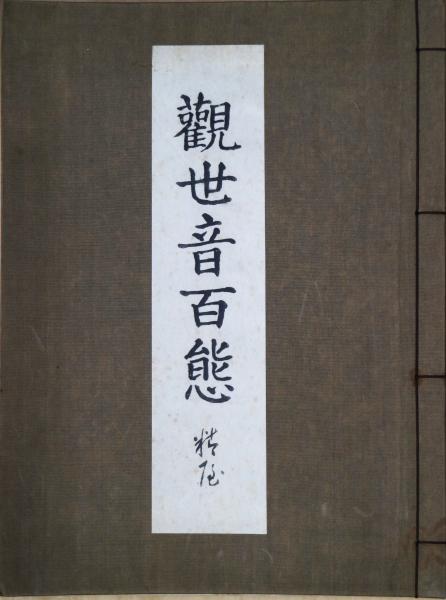 觀世音百態